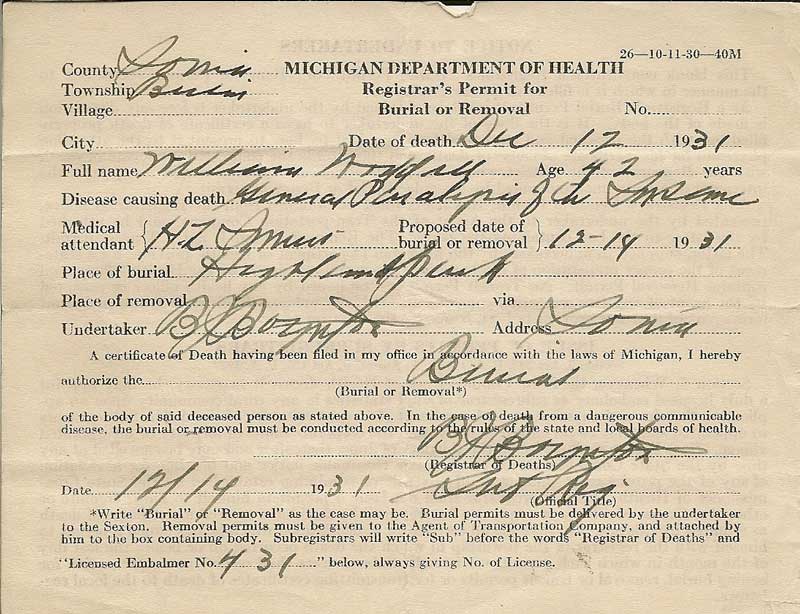 26—10-11-30—40M
County Ionia MICHIGAN DEPARTMENT OF HEALTH
Township Berlin Registrar's Permit for
Village Burial or Removal No.
City Date of death Dec 12 1931
Full name William Age 42 years
Disease causing death General Paralysis of the Insane
Medical attendant H L Proposed date of burial or removal 12-14 1931
Place of burial Highland Park
Place of removal via
Undertaker B J Boynton Address Ionia
A certificate of Death having been filed in my office in accordance with the laws of Michigan, I hereby
authorize the Burial
(Burial or Removal*)
of the body of said deceased person as stated above. In the case of death from a dangerous communicable
disease, the burial or removal must be conducted according to the rules of the state and local boards of health.
B J Boynton
(Registrar of Deaths)
Date 12/14 1931
(Official Title)
*Write "Burial" or "Removal" as the case may be. Burial permits must be delivered by the undertaker
to the Sexton. Removal permits must be given to the Agent of Transportation Company, and attached by
him to the box containing body. Subregistrars will write "Sub" before the words "Registrar of Deaths" and
"Licensed Embalmer No. 431" below, always giving No. of License.